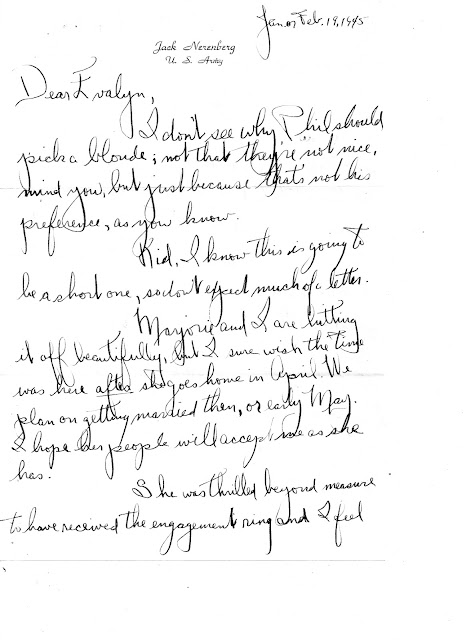 Jan or Feb. 19, 1945
Jack Nerenberg
U. S. Army
Dear Evalyn,
I don't see why Phil should
pick a blonde; not that they're not nice,
mind you, but just because that's not his
preference, as you know.
Kid, I know this is going to
be a short one, so don't expect much of a letter.
Marjorie and I are hitting
it off beautifully, but I sure wish the time
was here after she goes home in April. We
plan on getting married then, or early May.
I hope her people will accept me as she
has.
She was thrilled beyond measure
to have received the engagement ring and I feel